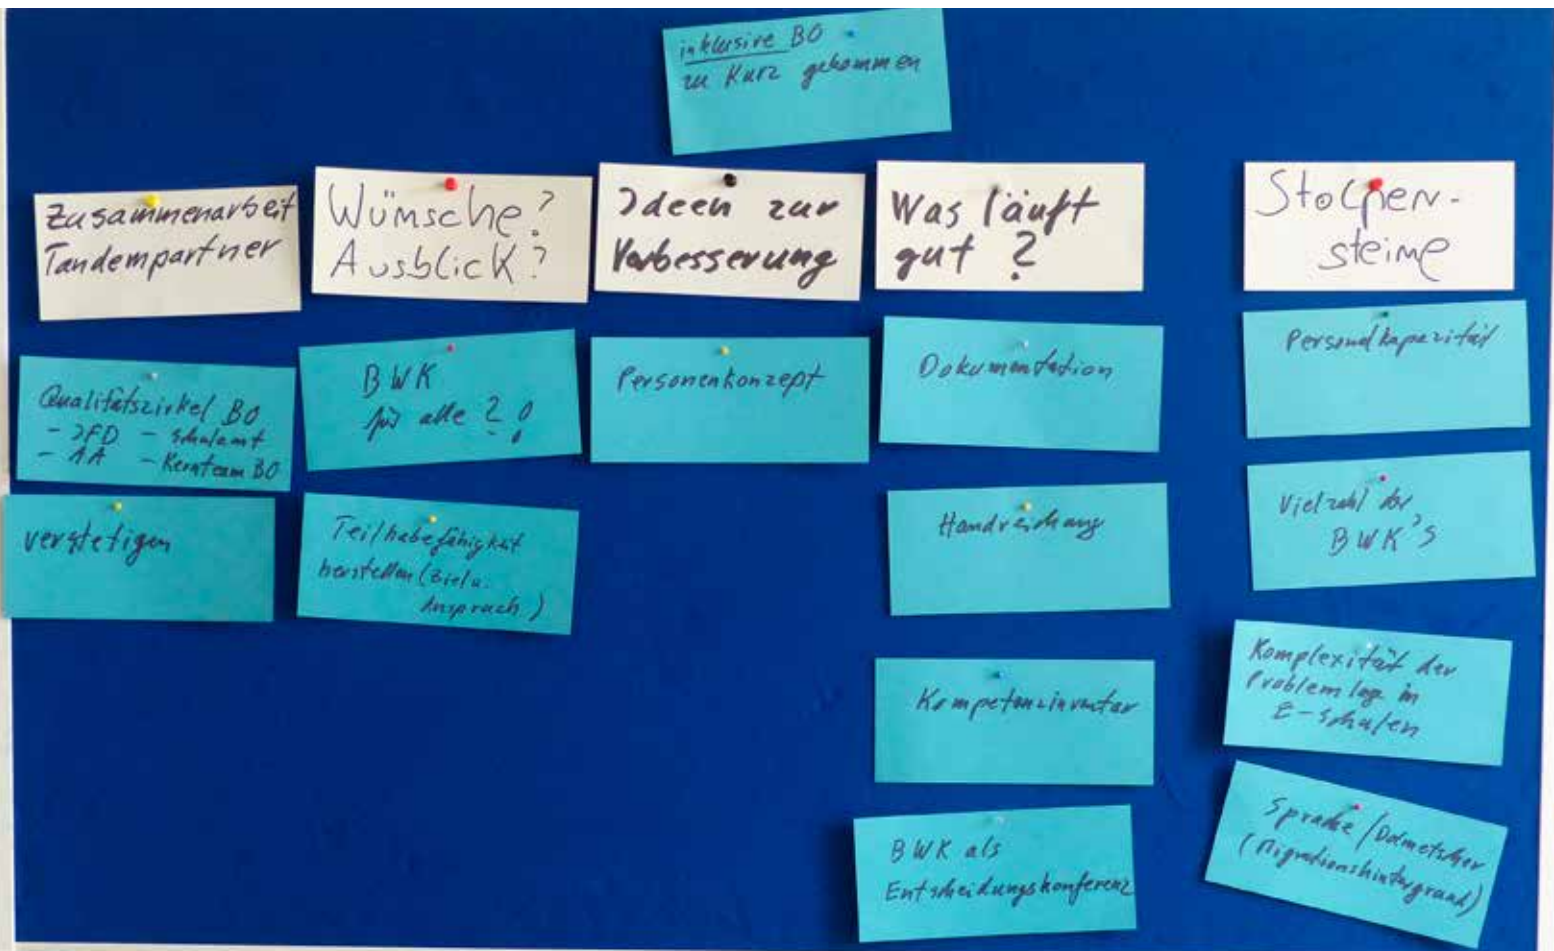 inklusive BO
zu kurz gekommen
Zusammenarbeit
Tandempartner
Qualitätszirkel BO
- IFD - Schulamt
- AA - Kernteam BO
verstetigen
Wünsche?
Ausblick?
BWK
für alle ? !
Teilhabefähigkeit
herstellen (Ziel u.
Anspruch)
Ideen zur
Verbesserung
Personenkonzept
Was läuft
gut ?
Dokumentation
Handreichung
Kompetenzinventar
BWK als
Entscheidungskonferenz
Stolpen-
steine
Personalkapazität
Vielzahl der
BWK's
Komplexität der
Problemlage in
E-Schulen
Sprache / Dolmetscher
(Migrationshintergrund)